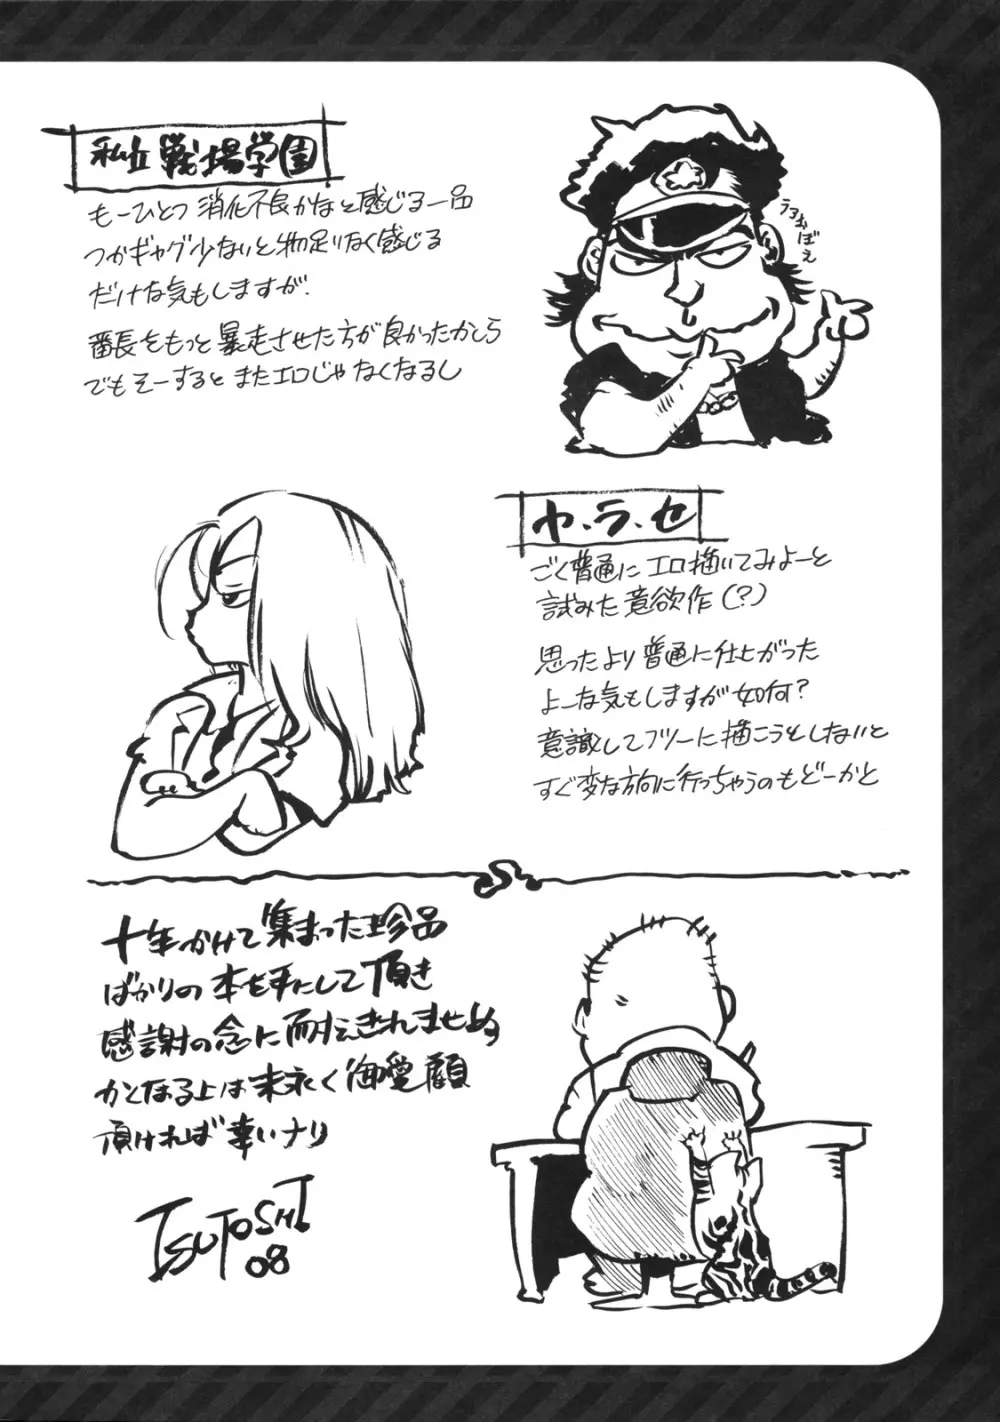 私立戦場学園
もーひとつ消化不良かなと感じる一品
つかギャグ少ないと物足りなく感じる
だけな気もしますが.
番長をもっと暴走させた方が良かったかしら
でもそーするとまたエロじゃなくなるし
うろおぼえ
ヤ.ラ.セ
ごく普通にエロ描いてみよーと
試みた意欲作(?)
思ったより普通に仕上がった
よーな気もしますが如何?
意識してフツーに描こうとしないと
すぐ変な方向に行っちゃうのもどーかと
十年かけて集まった珍品
ばかりの本を手にして頂き
感謝の念に耐えきれませぬ
かとなる上は末永く御愛顧
頂ければ幸いナリ
TSUTOSHI
08